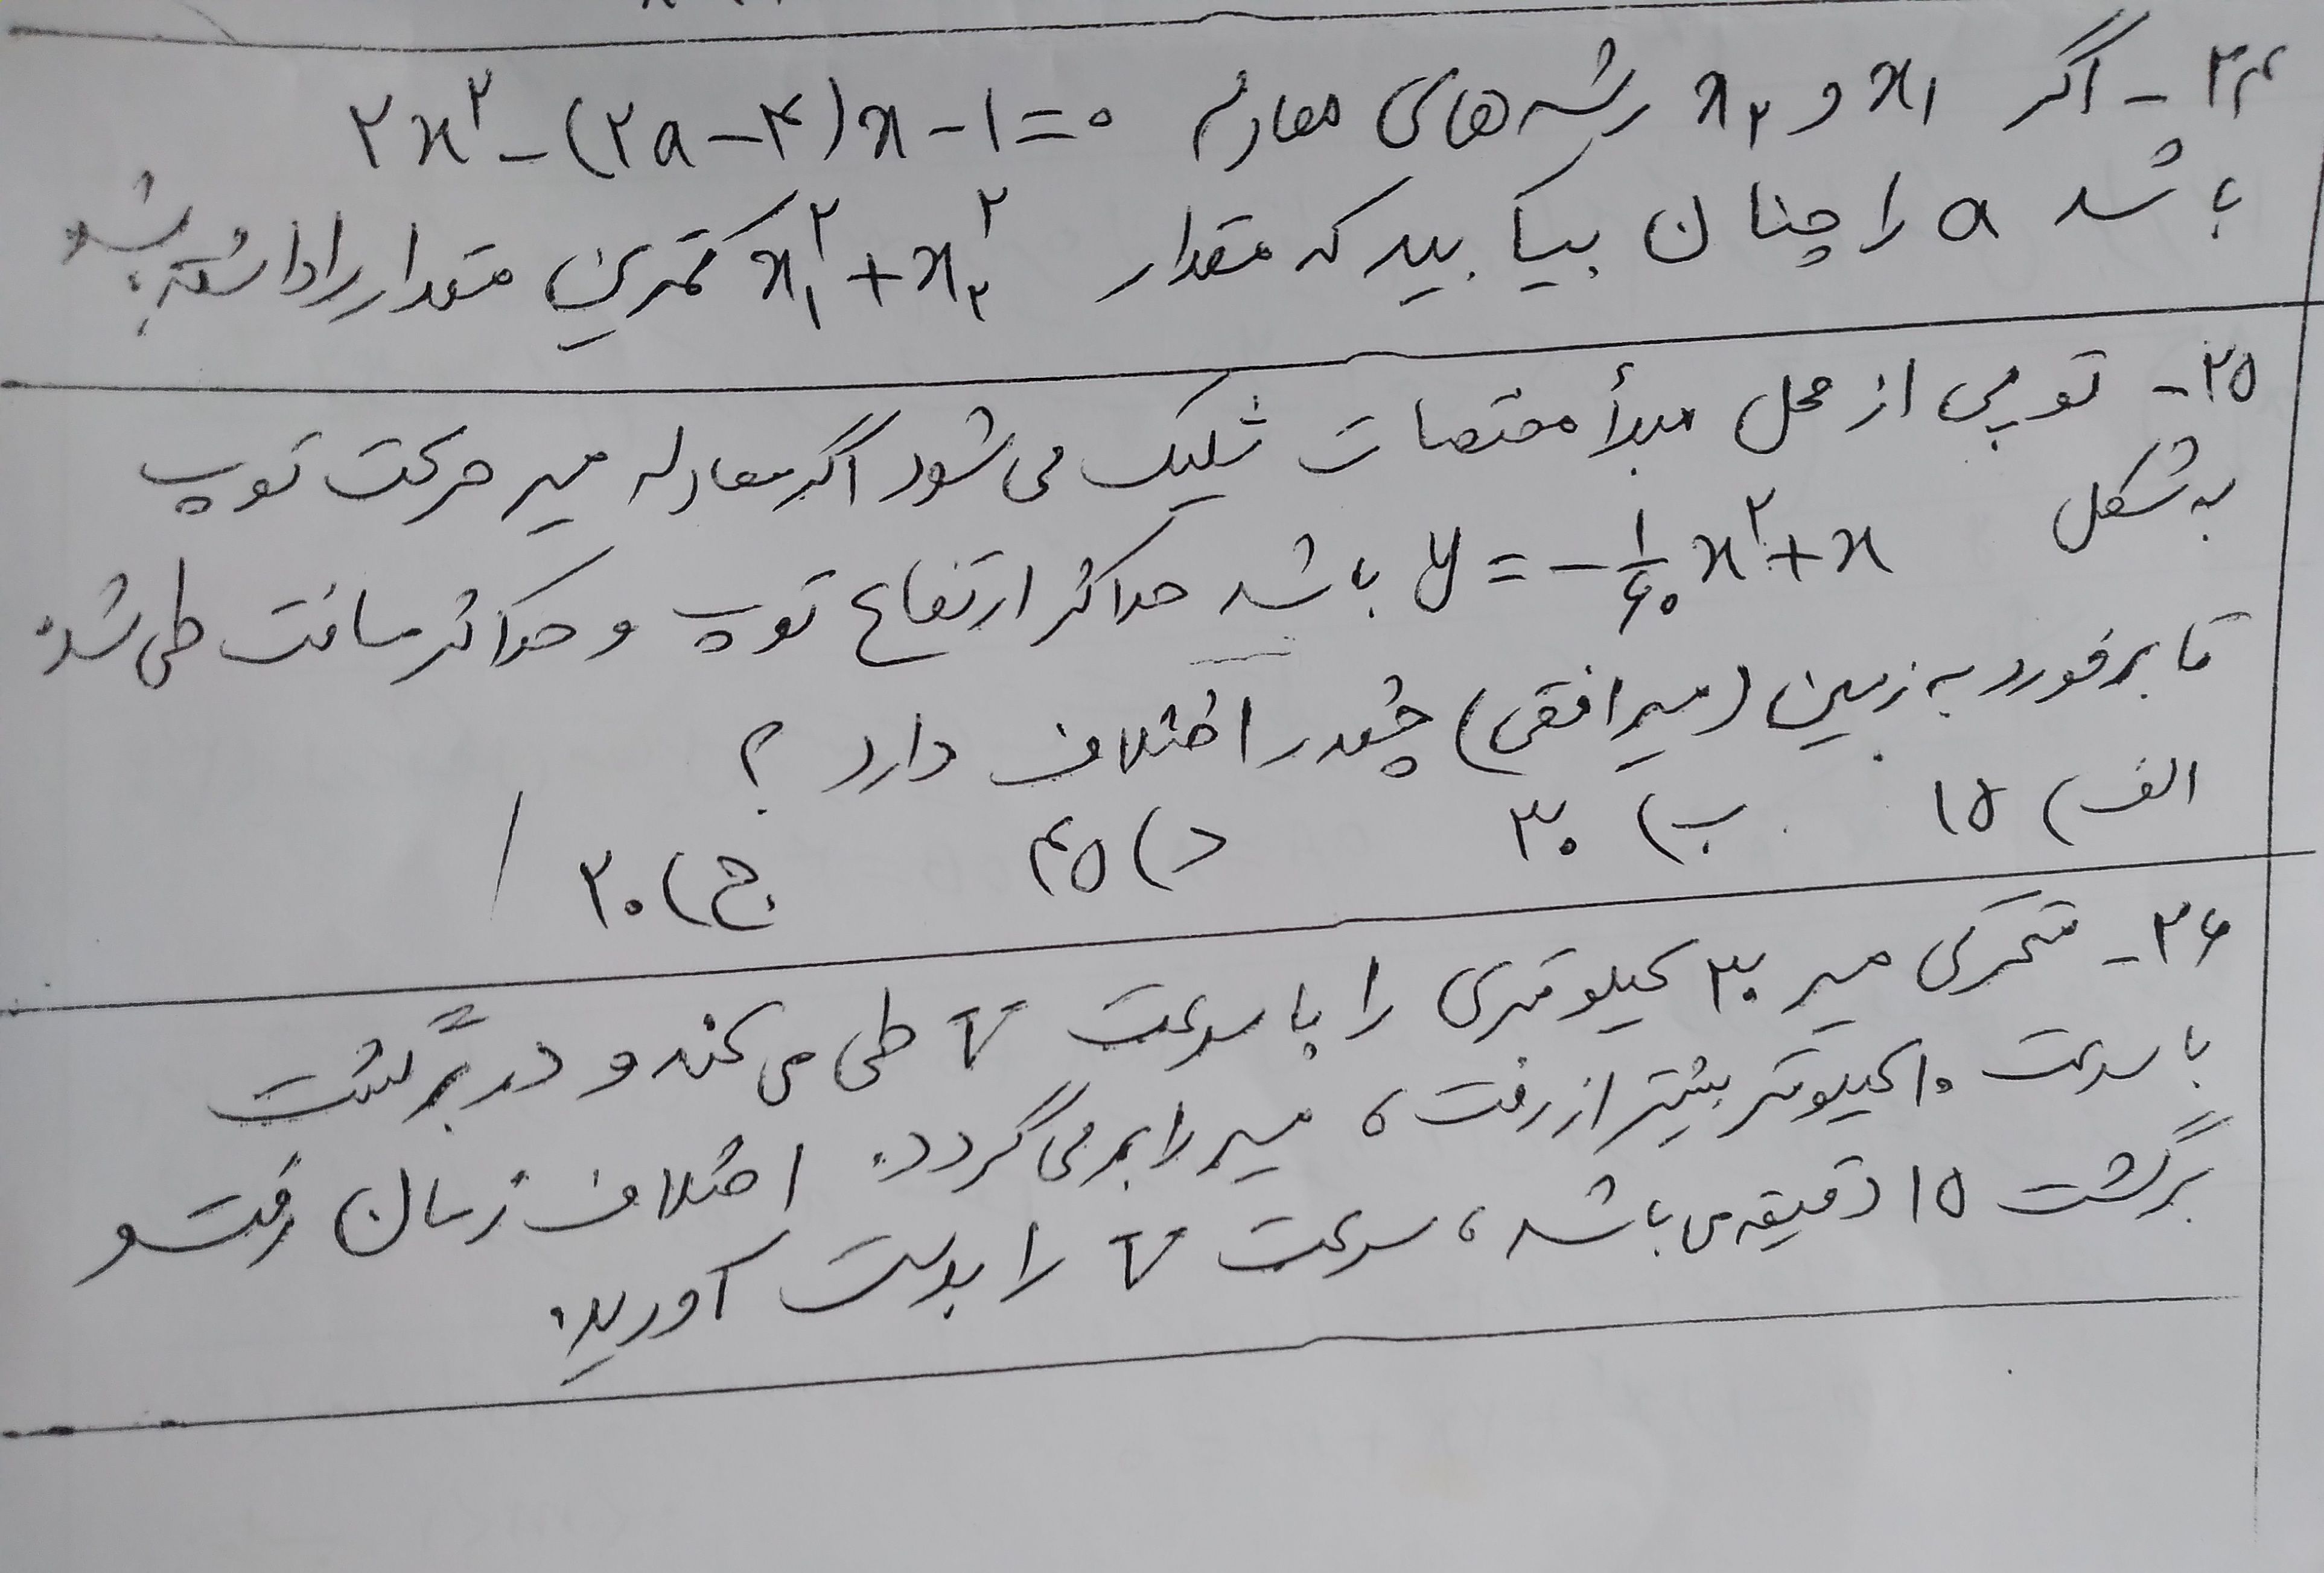 ۲۴- اگر x₁ و x₂ ریشه‌های معادله ۲x² - (۲a - ۴)x - ۱ = ۰
باشد a را چنان بیابید که مقدار x₁² + x₂² کمترین مقدار را داشته باشد
۲۵- توپی از محل مبدأ مختصات شلیک می‌شود اگر معادله مسیر حرکت توپ
به شکل y = -۱/۶۰ x² + x باشد حداکثر ارتفاع توپ و حداکثر مسافت طی شده
تا برخورد به زمین (مسیر افقی) چقدر اختلاف دارد ؟
الف) ۱۵ ب) ۳۰ د) ۴۵ ج) ۲۰
۲۶- متحرکی مسیر ۳۰ کیلومتری را با سرعت V طی می‌کند و در برگشت
با سرعت ۱۰ کیلومتر بیشتر از رفت، مسیر را برمی‌گردد. اختلاف زمان رفت و
برگشت ۱۵ دقیقه می‌باشد، سرعت V را بدست آورید.